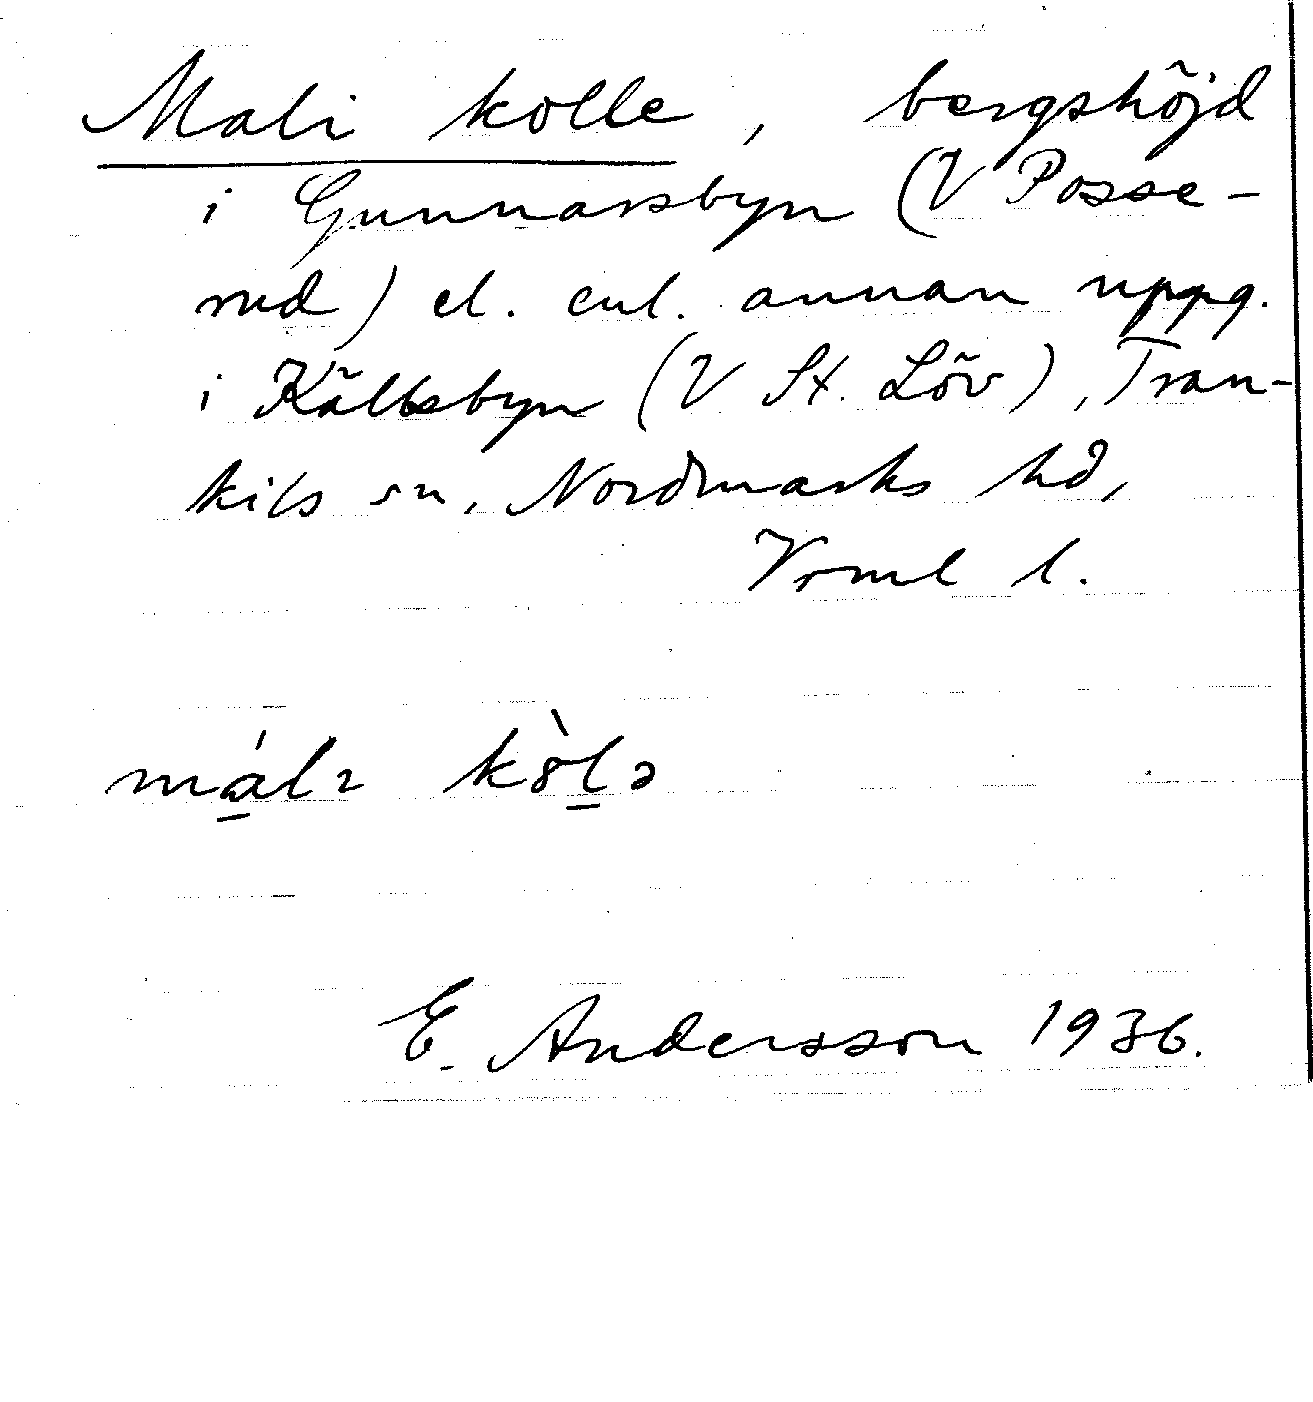 Mali kolle, bergshöjd
i Gunnarsbyn (V Posse-
rud) el. enl. annan uppg.
i Källsbyn (V St. Löv), Tran-
kils sn, Nordmarks hd,
Vrml l.
E. Andersson 1936.